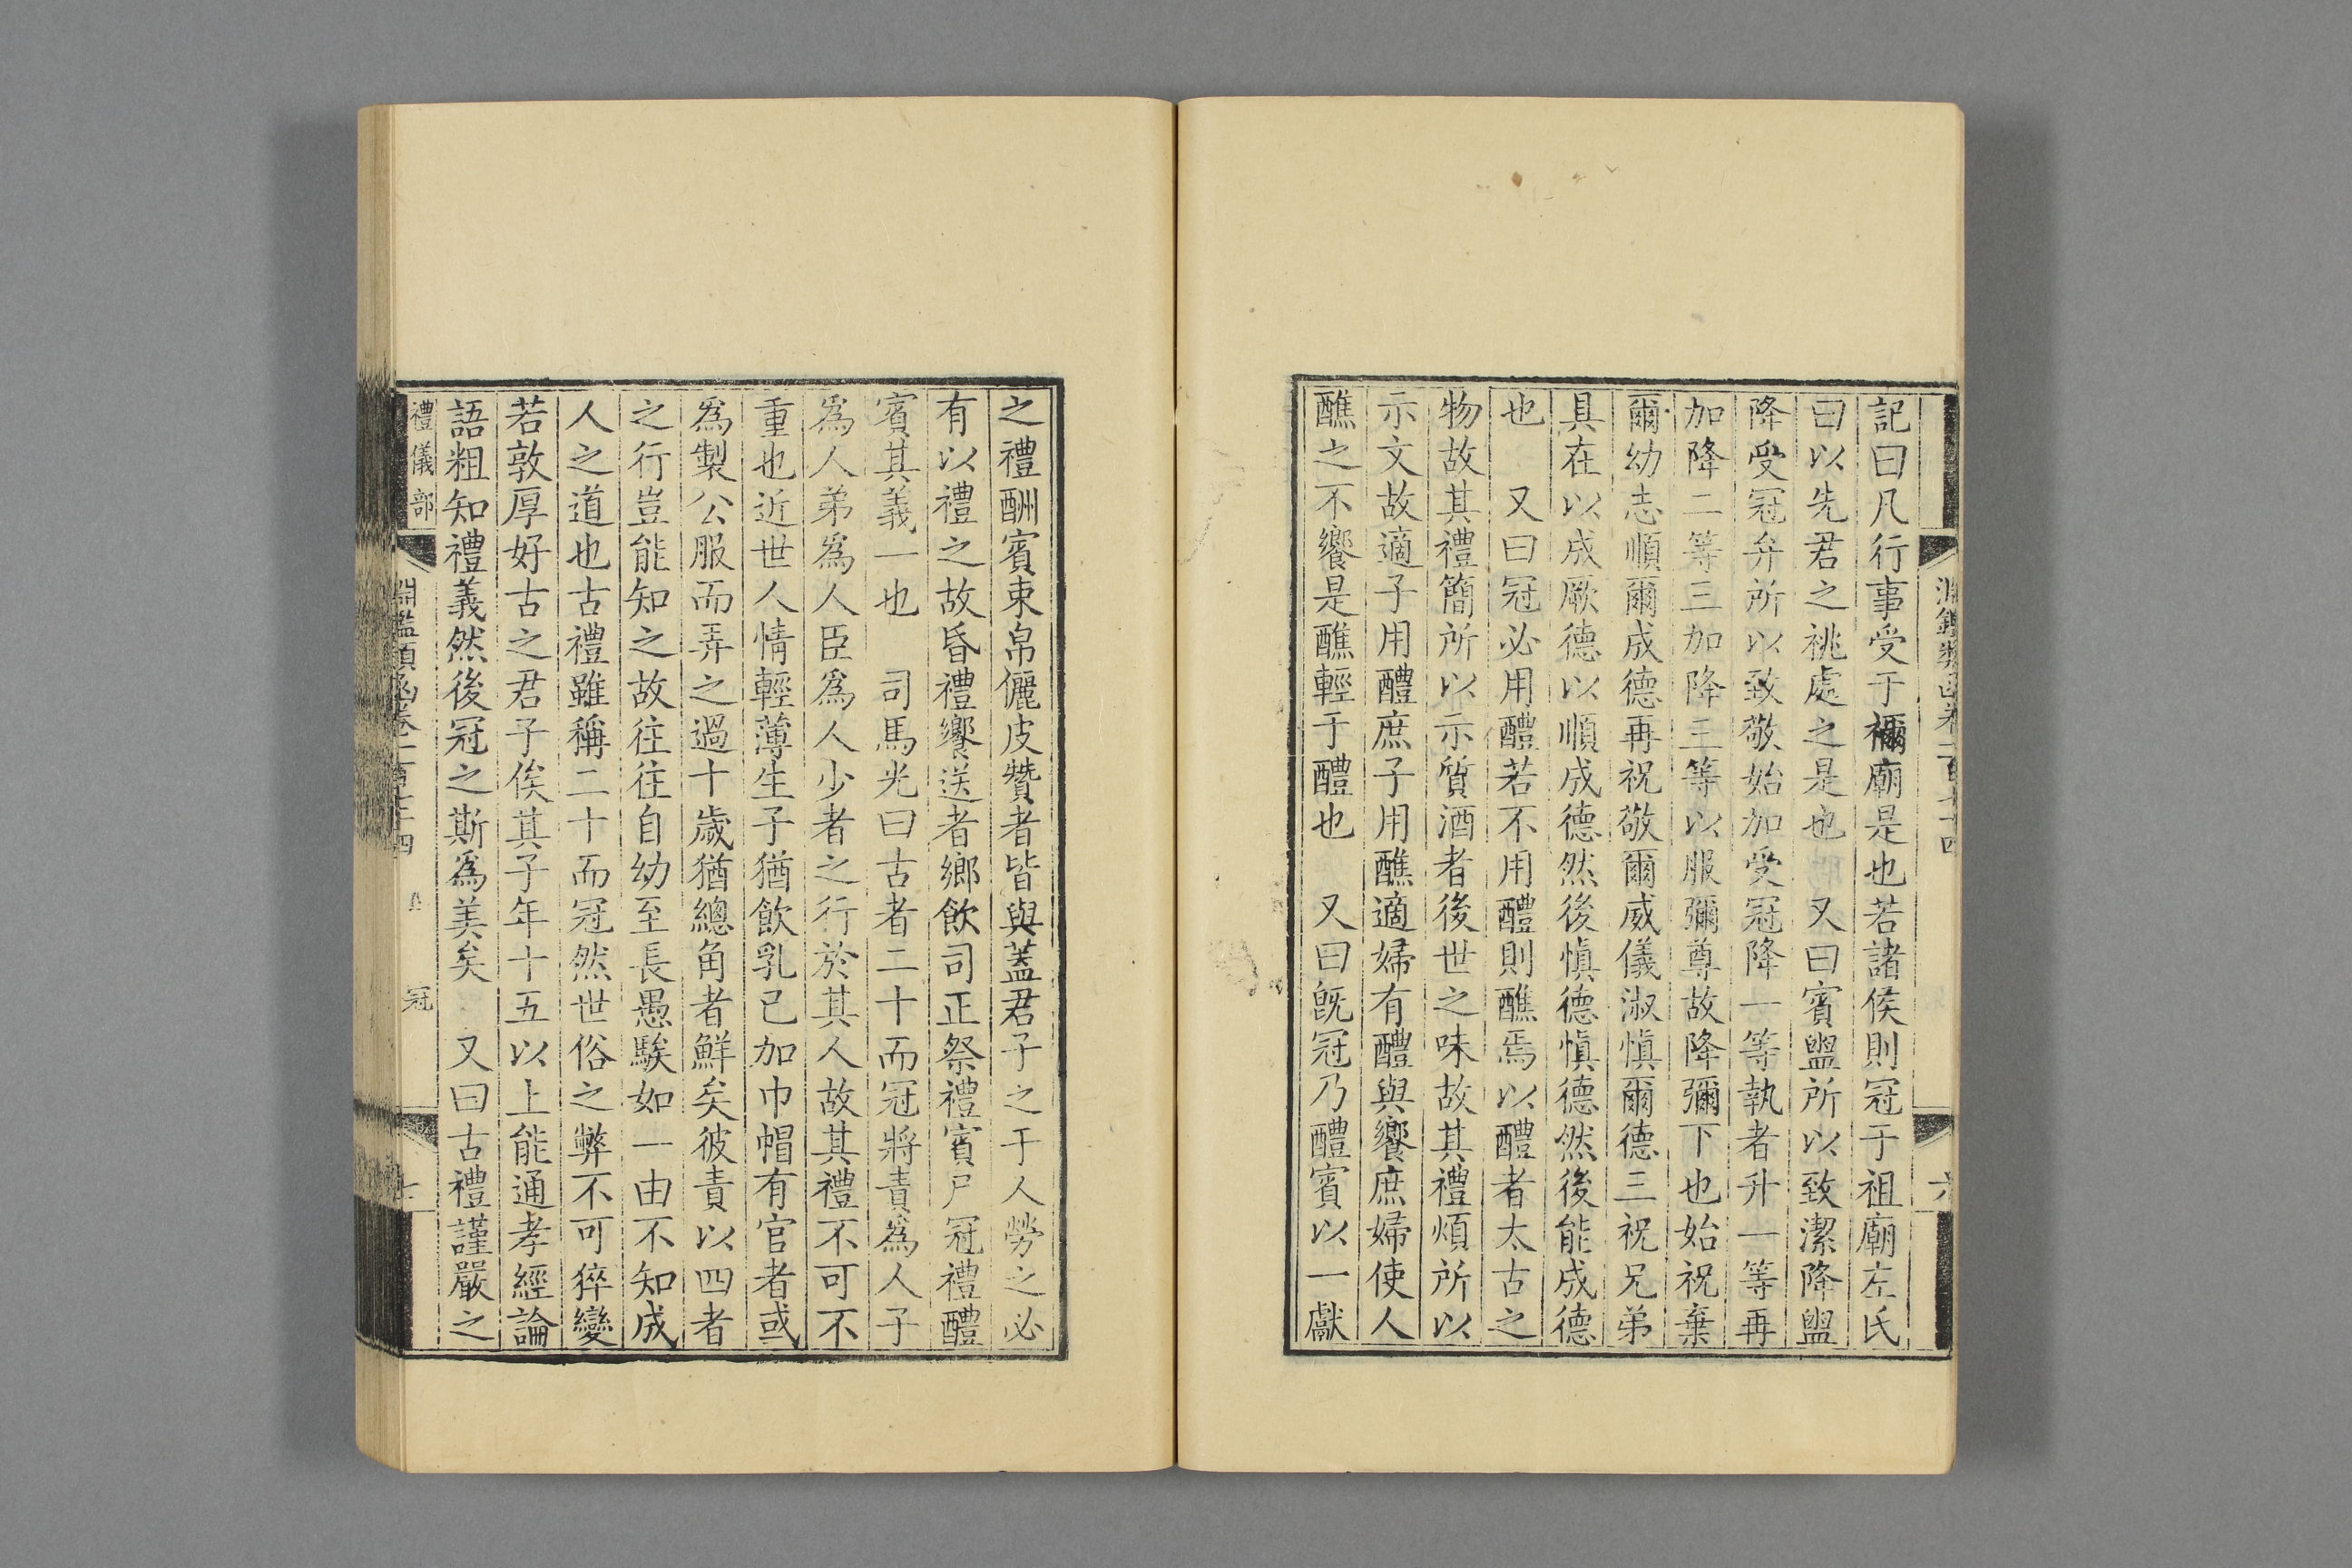 記曰凡行事受于禰廟是也若諸侯則冠于祖廟左氏
曰以先君之祧處之是也　又曰賓盥所以致潔降盥
降受冠弁所以致敬始加受冠降一等執者升一等再
加降二等三加降三等以服彌尊故降彌下也始祝棄
爾幼志順爾成德再祝敬爾威儀淑慎爾德三祝兄弟
具在以成厥德以順成德然後慎德慎德然後能成德
也　又曰冠必用醴若不用醴則醮焉以醴者太古之
物故其禮簡所以示質酒者後世之味故其禮煩所以
示文故適子用醴庶子用醮適婦有醴與饗庶婦使人
醮之不饗是醮輕于醴也　又曰旣冠乃醴賓以一獻
之禮酬賓束帛儷皮贊者皆與蓋君子之于人勞之必
有以禮之故昏禮饗送者鄉飲司正祭禮賓尸冠禮醴
賓其義一也　司馬光曰古者二十而冠將責爲人子
爲人弟爲人臣爲人少者之行於其人故其禮不可不
重也近世人情輕薄生子猶飲乳已加巾帽有官者或
爲製公服而弄之過十歲猶總角者鮮矣彼責以四者
之行豈能知之故往往自幼至長愚騃如一由不知成
人之道也古禮雖稱二十而冠然世俗之弊不可猝變
若敦厚好古之君子俟其子年十五以上能通孝經論
語粗知禮義然後冠之斯爲美矣　又曰古禮謹嚴之
禮儀部
淵鑑類函卷一百七十四
冠
七